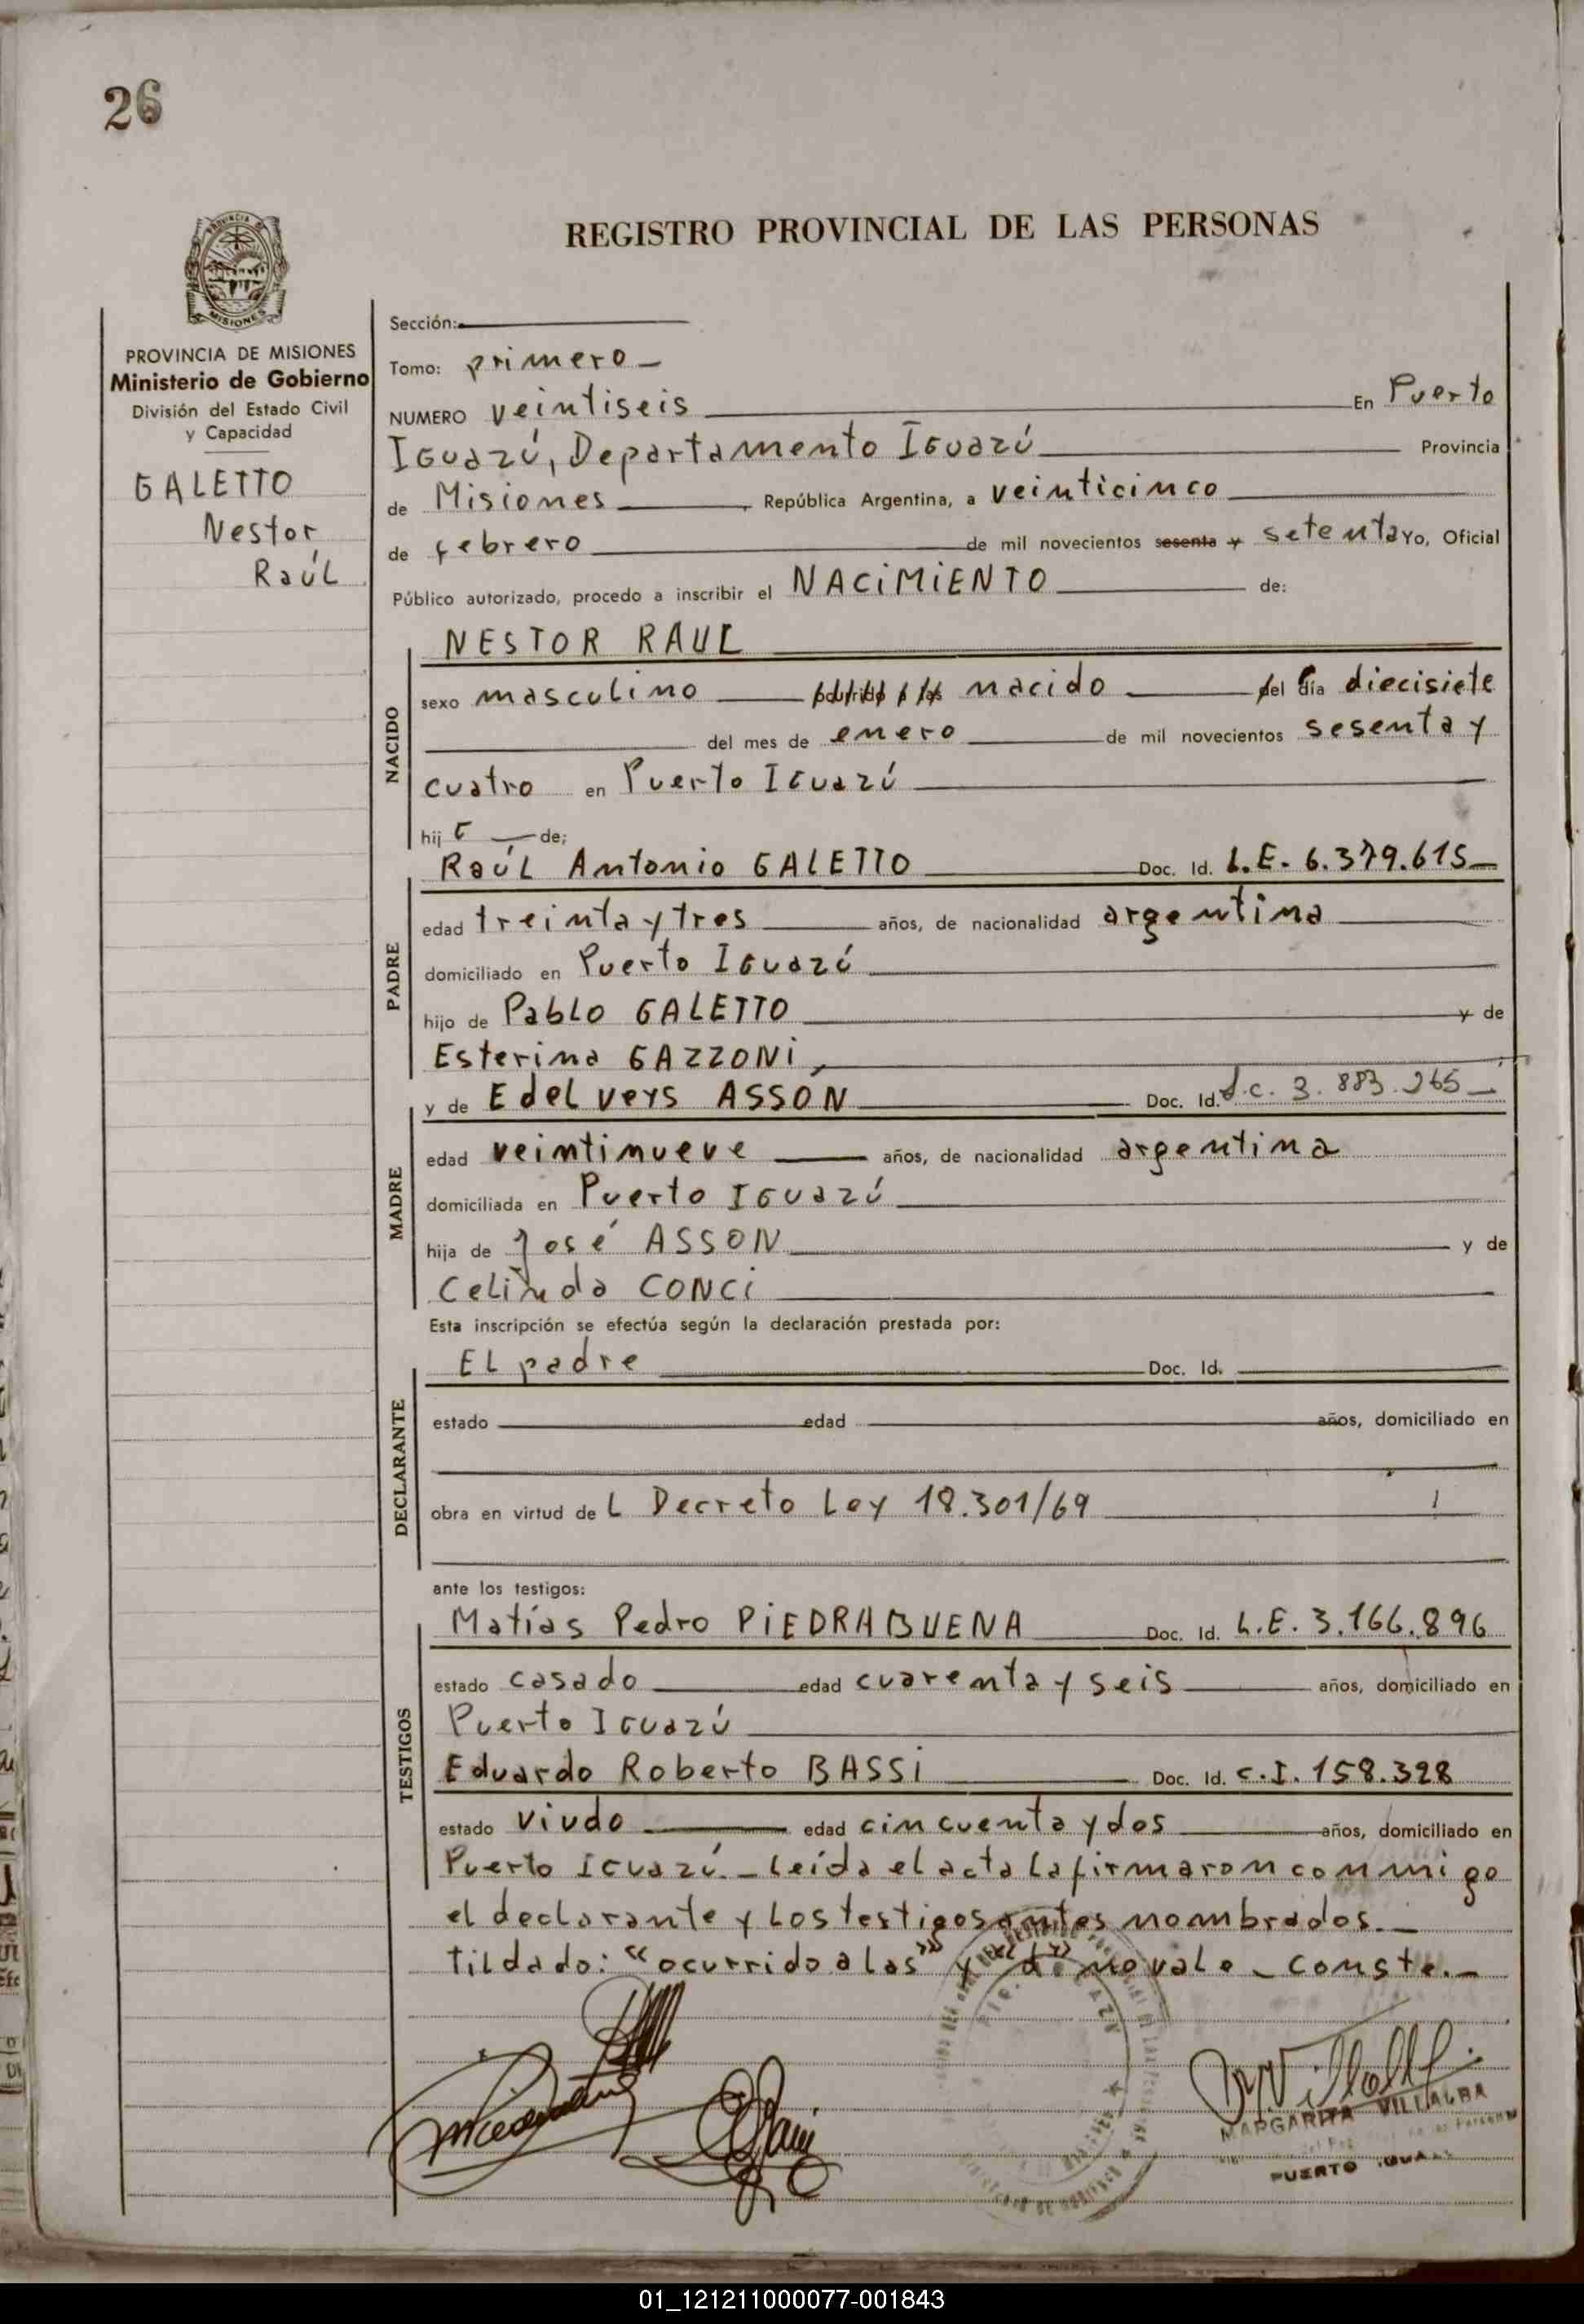 26
REGISTRO PROVINCIAL DE LAS PERSONAS
MISIONES
PROVINCIA DE MISIONES
Ministerio de Gobierno
División del Estado Civil
y Capacidad
GALETTO
Nestor
Raúl
Sección:
Tomo: primero
NUMERO veintiseis En Puerto
Iguazú, Departamento Iguazú Provincia
de Misiones, República Argentina, a veinticinco
de febrero de mil novecientos sesenta y setenta Yo, Oficial
Público autorizado, procedo a inscribir el NACIMIENTO de:
NACIDO
NESTOR RAUL
sexo masculino ocurrido a las nacido del día diecisiete
del mes de enero de mil novecientos sesenta y
cuatro en Puerto Iguazú
hijo de;
PADRE
Raúl Antonio GALETTO Doc. Id. L.E. 6.379.615
edad treinta y tres años, de nacionalidad argentina
domiciliado en Puerto Iguazú
hijo de Pablo GALETTO y de
Esterina GAZZONI,
MADRE
y de Edelveys ASSÓN Doc. Id. L.C. 3.883.265
edad veintinueve años, de nacionalidad argentina
domiciliada en Puerto Iguazú
hija de José ASSON y de
Celinda CONCI
Esta inscripción se efectúa según la declaración prestada por:
DECLARANTE
EL padre Doc. Id.
estado edad años, domiciliado en
obra en virtud deL Decreto Ley 18.301/69
ante los testigos:
TESTIGOS
Matías Pedro PIEDRABUENA Doc. Id. L.E. 3.166.896
estado casado edad cuarenta y seis años, domiciliado en
Puerto Iguazú
Eduardo Roberto BASSI Doc. Id. C.I. 158.328
estado viudo edad cincuenta y dos años, domiciliado en
Puerto Iguazú._ Leída el acta la firmaron conmigo
el declarante y los testigos antes nombrados._
tildado: "ocurrido a las" y "d" no vale _ conste._
MARGARITA VILLALBA
PUERTO
01_121211000077-001843